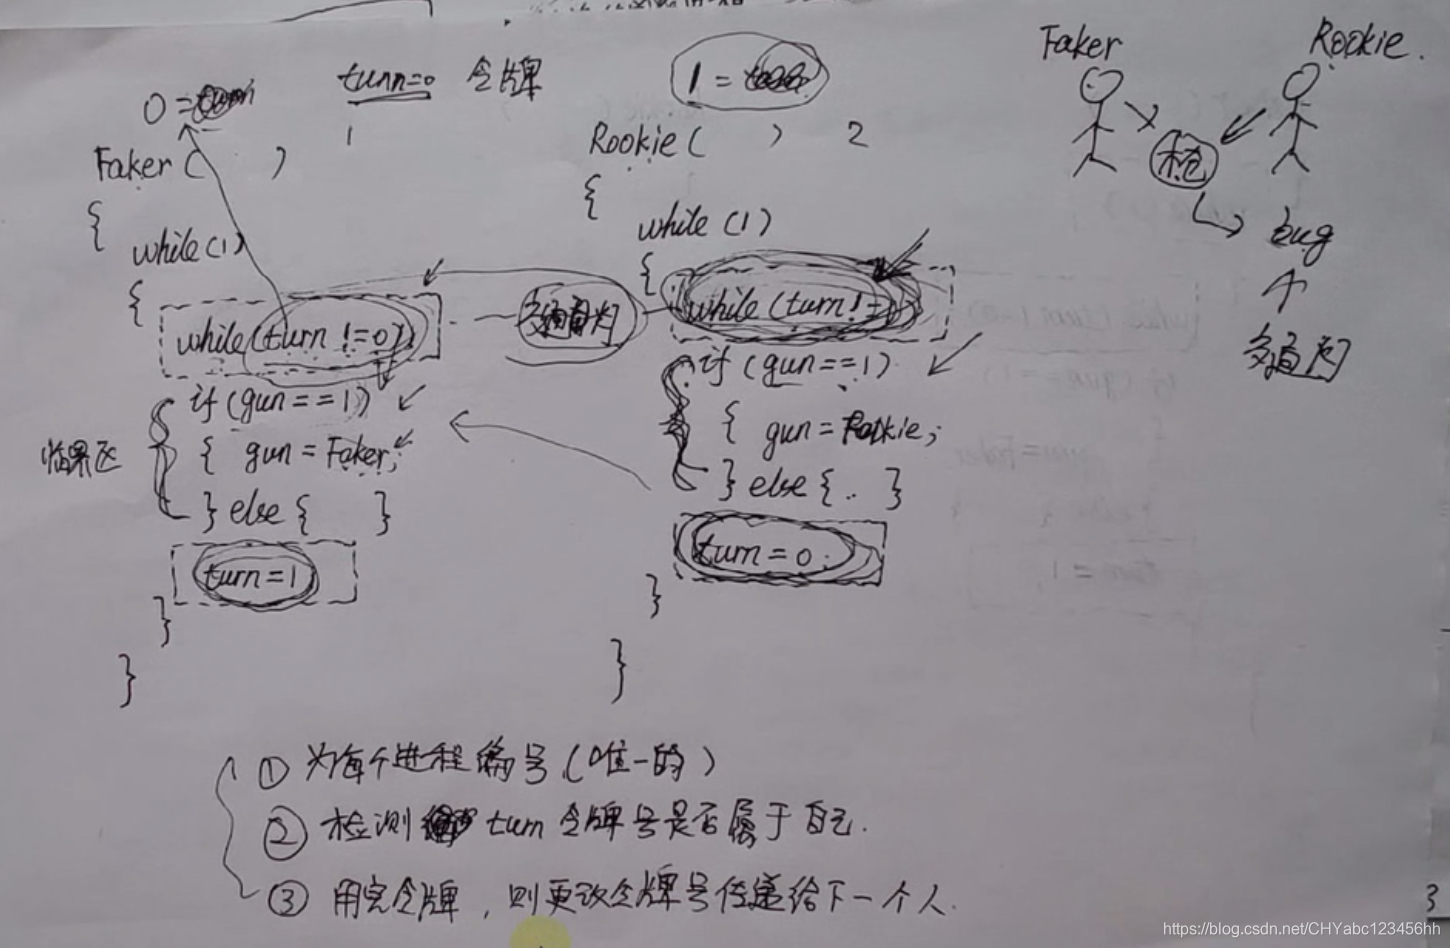 turn=0 令牌
0 =
1 =
Faker ( ) 1
{
while(1)
{
while(turn !=0);
if (gun==1)
{ gun = Faker;
} else { }
临界区
turn=1
}
}
Rookie ( ) 2
{
while (1)
{
while (turn !=
if (gun==1)
{ gun = Rookie;
} else { .. }
turn=0
}
}
Faker
Rookie.
枪
bug
① 为每个进程编号.(唯一的)
② 检测 turn 令牌号是否属于自己.
③ 用完令牌,则更改令牌号传递给下一个人.
3
https://blog.csdn.net/CHYabc123456hh